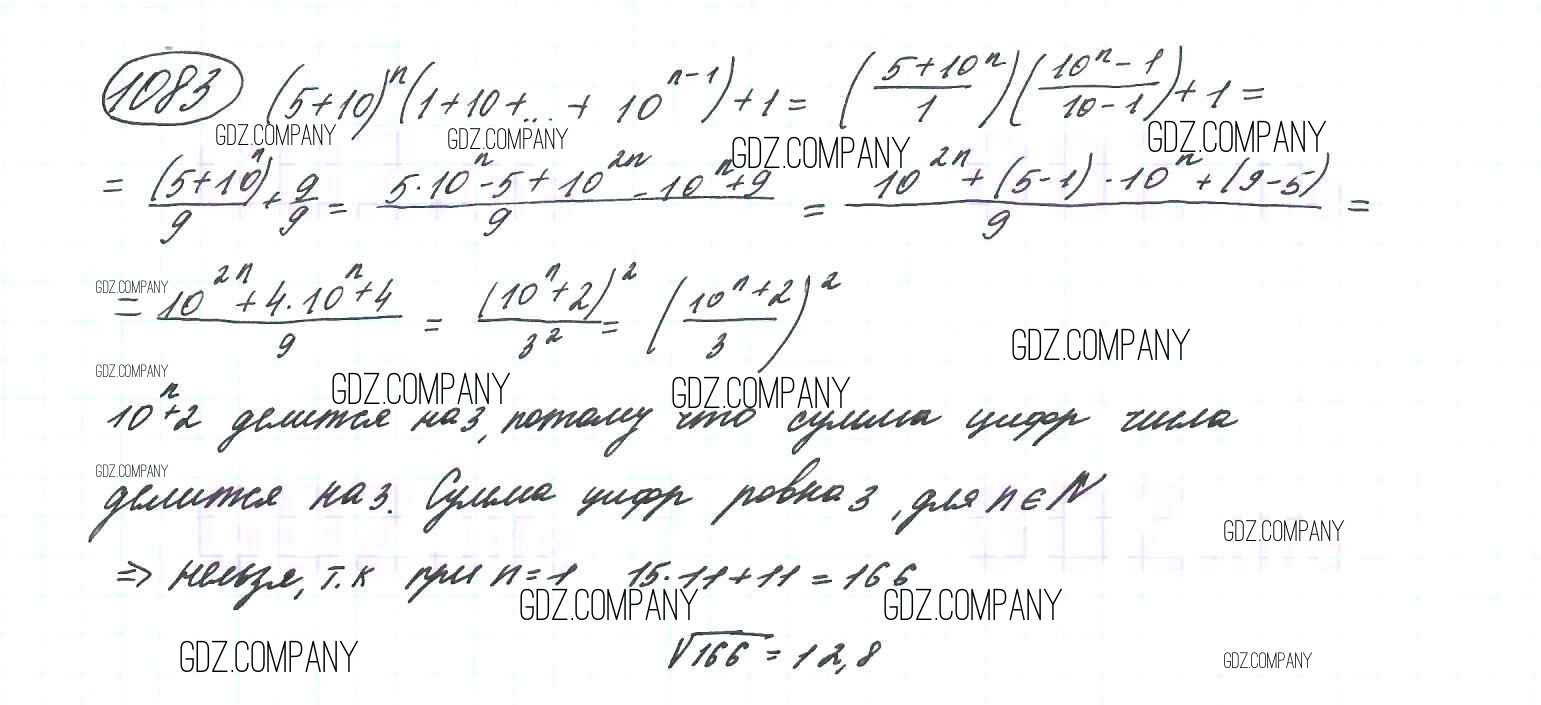 1083 (5+10)ⁿ(1+10+...+10ⁿ⁻¹)+1=((5+10ⁿ)/1)((10ⁿ-1)/(10-1))+1=
GDZ.COMPANY GDZ.COMPANY GDZ.COMPANY GDZ.COMPANY
=(5+10ⁿ)/9+9/9=(5·10ⁿ-5+10²ⁿ-10ⁿ+9)/9=(10²ⁿ+(5-1)·10ⁿ+(9-5))/9=
GDZ.COMPANY
=(10²ⁿ+4·10ⁿ+4)/9=(10ⁿ+2)²/3²=((10ⁿ+2)/3)²
GDZ.COMPANY
GDZ.COMPANY GDZ.COMPANY GDZ.COMPANY
10ⁿ+2 делится на 3, потому что сумма цифр числа
GDZ.COMPANY
делится на 3. Сумма цифр ровна 3, для n∈N
GDZ.COMPANY
=> нельзя, т.к при n=1 15·11+11=166
GDZ.COMPANY GDZ.COMPANY
GDZ.COMPANY √166=12,8 GDZ.COMPANY